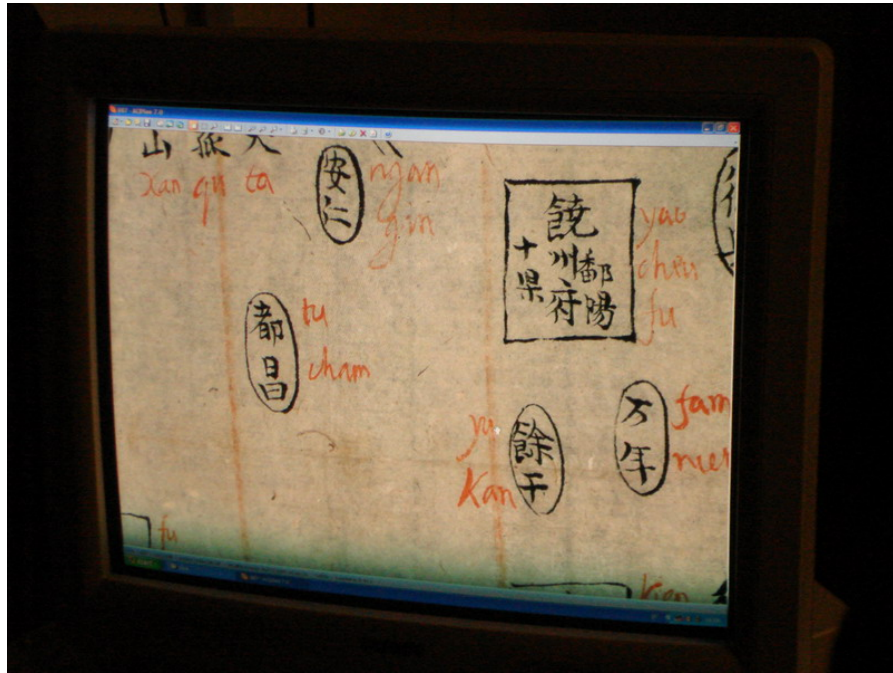 山 孤 大
xan qu ta
安仁
ngan
gin
饒州府
鄱陽
十県
yao
cheu
fu
都昌
tu
cham
餘干
yu
Kan
万年
fam
nien
fu
Kien